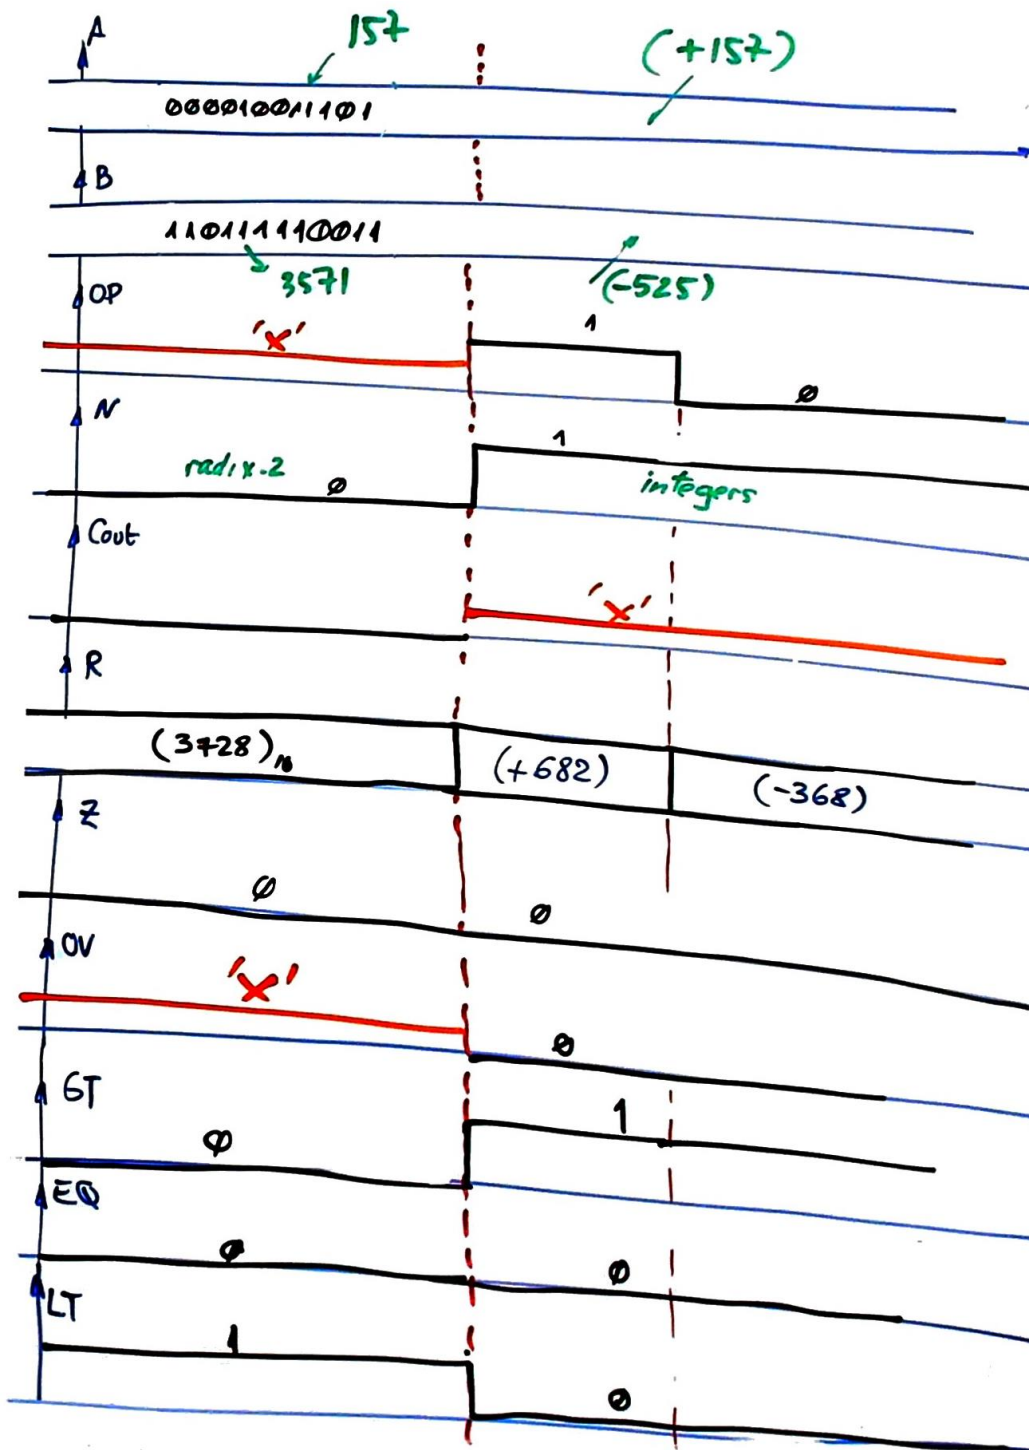 A
157
(+157)
000010011101
B
110111110011
3571
(-525)
OP
'X'
1
0
N
radix-2
0
1
integers
Cout
'X'
R
(3728)₁₀
(+682)
(-368)
Z
0
0
OV
'X'
0
GT
0
1
EQ
0
0
LT
1
0